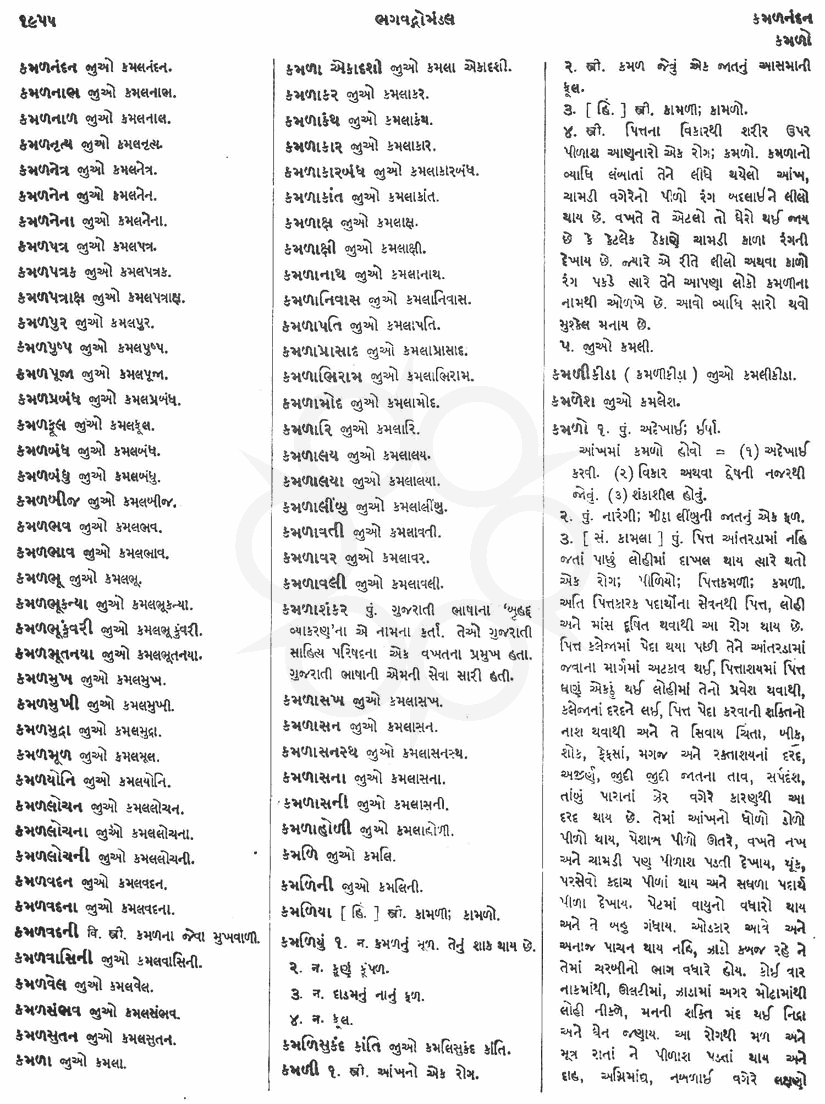 ૧૯૫૫
ભગવદ્ગોમંડલ
કમળનંદન
કમળો
કમળનંદન જુઓ કમલનંદન.
કમળનાભ જુઓ કમલનાભ.
કમળનાળ જુઓ કમલનાલ.
કમળનૃત્ય જુઓ કમલનૃત્ય.
કમળનેત્ર જુઓ કમલનેત્ર.
કમળનેન જુઓ કમલનેન.
કમળનેના જુઓ કમલનેના.
કમળપત્ર જુઓ કમલપત્ર.
કમળપત્રક જુઓ કમલપત્રક.
કમળપત્રાક્ષ જુઓ કમલપત્રાક્ષ.
કમળપુર જુઓ કમલપુર.
કમળપુષ્પ જુઓ કમલપુષ્પ.
કમળપૂજા જુઓ કમલપૂજા.
કમળપ્રબંધ જુઓ કમલપ્રબંધ.
કમળફૂલ જુઓ કમલફૂલ.
કમળબંધ જુઓ કમલબંધ.
કમળબંધુ જુઓ કમલબંધુ.
કમળબીજ જુઓ કમલબીજ.
કમળભવ જુઓ કમલભવ.
કમળભાવ જુઓ કમલભાવ.
કમળભૂ જુઓ કમલભૂ.
કમળભૂકન્યા જુઓ કમલભૂકન્યા.
કમળભૂકુંવરી જુઓ કમલભૂકુંવરી.
કમળભૂતનયા જુઓ કમલભૂતનયા.
કમળમુખ જુઓ કમલમુખ.
કમળમુખી જુઓ કમલમુખી.
કમળમુદ્રા જુઓ કમલમુદ્રા.
કમળમૂળ જુઓ કમલમૂલ.
કમળયોનિ જુઓ કમલયોનિ.
કમળલોચન જુઓ કમલલોચન.
કમળલોચના જુઓ કમલલોચના.
કમળલોચની જુઓ કમલલોચની.
કમળવદન જુઓ કમલવદન.
કમળવદના જુઓ કમલવદના.
કમળવદની વિ. સ્ત્રી. કમળના જેવા મુખવાળી.
કમળવાસિની જુઓ કમલવાસિની.
કમળવેલ જુઓ કમલવેલ.
કમળસંભવ જુઓ કમલસંભવ.
કમળસુતન જુઓ કમલસુતન.
કમળા જુઓ કમલા.
કમળા એકાદશી જુઓ કમલા એકાદશી.
કમળાકર જુઓ કમલાકર.
કમળાકંથ જુઓ કમલાકંથ.
કમળાકાર જુઓ કમલાકાર.
કમળાકારબંધ જુઓ કમલાકારબંધ.
કમળાકાંત જુઓ કમલાકાંત.
કમળાક્ષ જુઓ કમલાક્ષ.
કમળાક્ષી જુઓ કમલાક્ષી.
કમળાનાથ જુઓ કમલાનાથ.
કમળાનિવાસ જુઓ કમલાનિવાસ.
કમળાપતિ જુઓ કમલાપતિ.
કમળાપ્રાસાદ જુઓ કમલાપ્રાસાદ.
કમળાભિરામ જુઓ કમલાભિરામ.
કમળામોદ જુઓ કમલામોદ.
કમળારિ જુઓ કમલારિ.
કમળાલય જુઓ કમલાલય.
કમળાલયા જુઓ કમલાલયા.
કમળાલીંબુ જુઓ કમલાલીંબુ.
કમળાવતી જુઓ કમલાવતી.
કમળાવર જુઓ કમલાવર.
કમળાવલી જુઓ કમલાવલી.
કમળાશંકર પું. ગુજરાતી ભાષાના ‘બૃહદ્
વ્યાકરણ’ના એ નામના કર્તા. તેઓ ગુજરાતી
સાહિત્ય પરિષદના એક વખતના પ્રમુખ હતા.
ગુજરાતી ભાષાની એમની સેવા સારી હતી.
કમળાસખ જુઓ કમલાસખ.
કમળાસન જુઓ કમલાસન.
કમળાસનસ્થ જુઓ કમલાસનસ્થ.
કમળાસના જુઓ કમલાસના.
કમળાસની જુઓ કમલાસની.
કમળાહોળી જુઓ કમલાહોળી.
કમળિ જુઓ કમલિ.
કમળિની જુઓ કમલિની.
કમળિયા [ હિં. ] સ્ત્રી. કામળી; કામળો.
કમળિયું ૧. ન. કમળનું મૂળ. તેનું શાક થાય છે.
૨. ન. કૂણું કૂંપળ.
૩. ન. દાડમનું નાનું ફળ.
૪. ન. ફૂલ.
કમળિસુકંદ કાંતિ જુઓ કમલિસુકંદ કાંતિ.
કમળી ૧. સ્ત્રી. આંખનો એક રોગ.
૨. સ્ત્રી. કમળ જેવું એક જાતનું આસમાની
ફૂલ.
૩. [ હિં. ] સ્ત્રી. કામળી; કામળો.
૪. સ્ત્રી. પિત્તના વિકારથી શરીર ઉપર
પીળાશ આણનારો એક રોગ; કમળો. કમળાનો
વ્યાધિ લંબાતાં તેને લીધે થયેલો આંખ,
ચામડી વગેરેનો પીળો રંગ બદલાઈને લીલો
થાય છે. વખતે તે એટલો તો ઘેરો થઈ જાય
છે કે કેટલેક ઠેકાણે ચામડી કાળા રંગની
દેખાય છે. જ્યારે એ રીતે લીલો અથવા કાળો
રંગ પકડે ત્યારે તેને આપણા લોકો કમળીના
નામથી ઓળખે છે. આવો વ્યાધિ સારો થવો
મુશ્કેલ મનાય છે.
૫. જુઓ કમલી.
કમળીકીડા ( કમળીકીડા ) જુઓ કમલીકીડા.
કમળેશ જુઓ કમલેશ.
કમળો ૧. પું. અદેખાઈ; ઈર્ષા.
આંખમાં કમળો હોવો = (૧) અદેખાઈ
કરવી. (૨) વિકાર અથવા દ્વેષની નજરથી
જોવું. (૩) શંકાશીલ હોવું.
૨. પું. નારંગી; મીઠા લીંબુની જાતનું એક ફળ.
૩. [ સં. કામલા ] પું. પિત્ત આંતરડામાં નહિ
જતાં પાછું લોહીમાં દાખલ થાય ત્યારે થતો
એક રોગ; પીળિયો; પિત્તકમળી; કમળી.
અતિ પિત્તકારક પદાર્થોના સેવનથી પિત્ત, લોહી
અને માંસ દૂષિત થવાથી આ રોગ થાય છે.
પિત્ત કલેજામાં પેદા થયા પછી તેને આંતરડામાં
જવાના માર્ગમાં અટકાવ થઈ, પિત્તાશયમાં પિત્ત
ઘણું એકઠું થઈ લોહીમાં તેનો પ્રવેશ થવાથી,
કલેજાનાં દરદને લઈ, પિત્ત પેદા કરવાની શક્તિનો
નાશ થવાથી અને તે સિવાય ચિંતા, બીક,
શોક, ફેફસાં, મગજ અને રક્તાશયનાં દરદ,
અજીર્ણ, જુદી જુદી જાતના તાવ, સર્પદંશ,
તાંબું પારાનાં ઝેર વગેરે કારણથી આ
દરદ થાય છે. તેમાં આંખનો ધોળો ડોળો
પીળો થાય, પેશાબ પીળો ઊતરે, વખતે નખ
અને ચામડી પણ પીળાશ પડતી દેખાય, થૂંક,
પરસેવો કદાચ પીળાં થાય અને સઘળા પદાર્થ
પીળા દેખાય. પેટમાં વાયુનો વધારો થાય
અને તે બહુ ગંધાય. ઓડકાર આવે અને
અનાજ પાચન થાય નહિ, ઝાડો કબજ રહે ને
તેમાં ચરબીનો ભાગ વધારે હોય. કોઈ વાર
નાકમાંથી, ઊલટીમાં, ઝાડામાં અગર મોઢામાંથી
લોહી નીકળે, મનની શક્તિ મંદ થઈ નિદ્રા
અને ઘેન જણાય. આ રોગથી મળ અને
મૂત્ર રાતાં ને પીળાશ પડતાં થાય અને
દાહ, અગ્નિમાંદ્ય, નબળાઈ વગેરે લક્ષણો